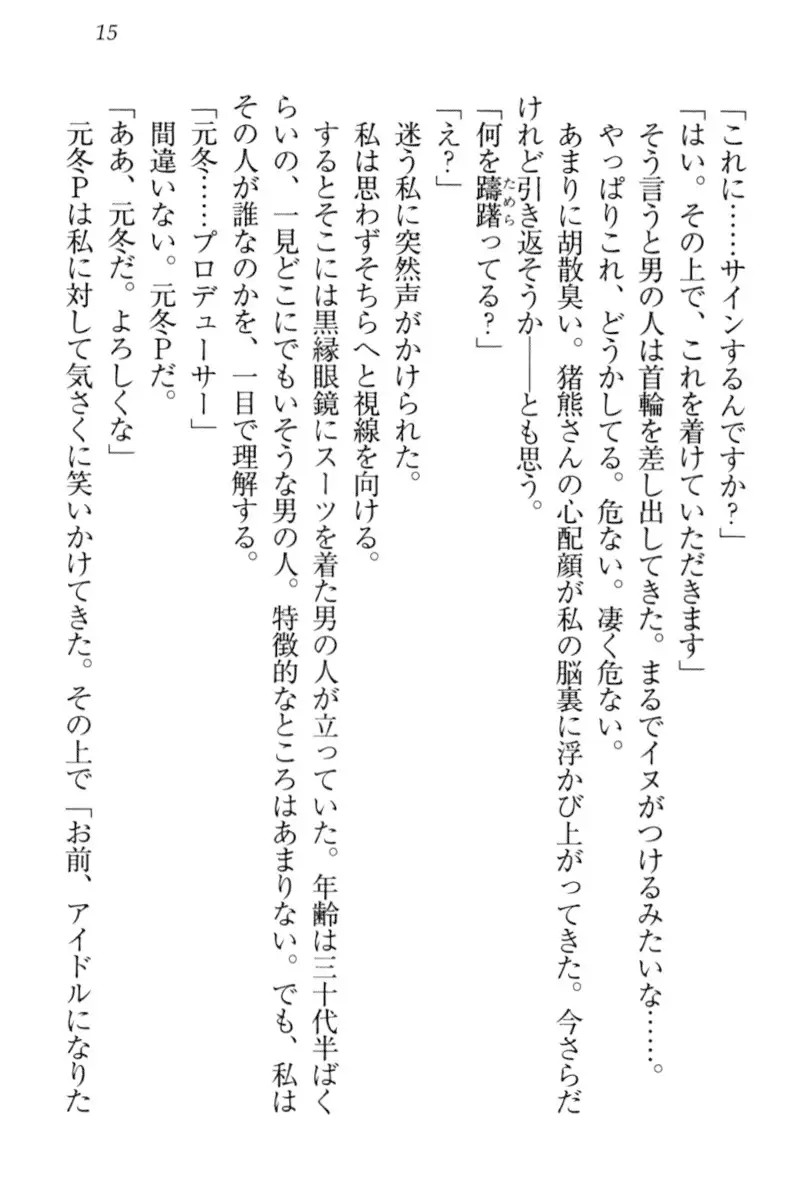 15
「これに……サインするんですか？」
「はい。その上で、これを着けていただきます」
そう言うと男の人は首輪を差し出してきた。まるでイヌがつけるみたいな……。
やっぱりこれ、どうかしてる。危ない。凄く危ない。
あまりに胡散臭い。猪熊さんの心配顔が私の脳裏に浮かび上がってきた。今さらだ
けれど引き返そうか――とも思う。
「何を躊躇ってる？」
ためら
「え？」
迷う私に突然声がかけられた。
私は思わずそちらへと視線を向ける。
するとそこには黒縁眼鏡にスーツを着た男の人が立っていた。年齢は三十代半ばく
らいの、一見どこにでもいそうな男の人。特徴的なところはあまりない。でも、私は
その人が誰なのかを、一目で理解する。
「元冬……プロデューサー」
間違いない。元冬Pだ。
「ああ、元冬だ。よろしくな」
元冬Pは私に対して気さくに笑いかけてきた。その上で「お前、アイドルになりた